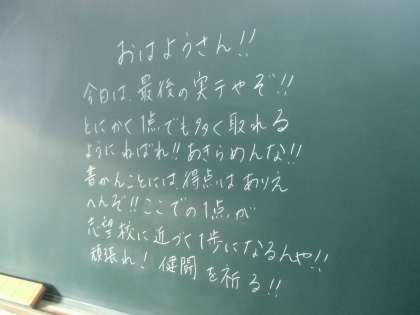 おはようさん!!
今日は、最後の実テやぞ!!
とにかく1点でも多く取れる
ようにねばれ!!あきらめんな!!
書かんことには、得点はありえ
へんぞ!!ここでの1点が
志望校に近づく1歩になるんや!!
頑張れ!健闘を祈る!!